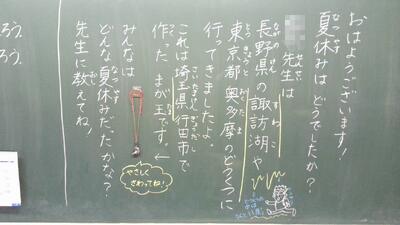 おはようございます！
夏休みはどうでしたか？
先生は
長野県の諏訪湖や
東京都奥多摩のどうくつに
行ってきましたよ。
これは埼玉県行田市で
作った まが玉です。←
みんなは
どんな夏休みだったかな？
先生に教えてね！
やさしく
さわってね！
ろう、
ろう。